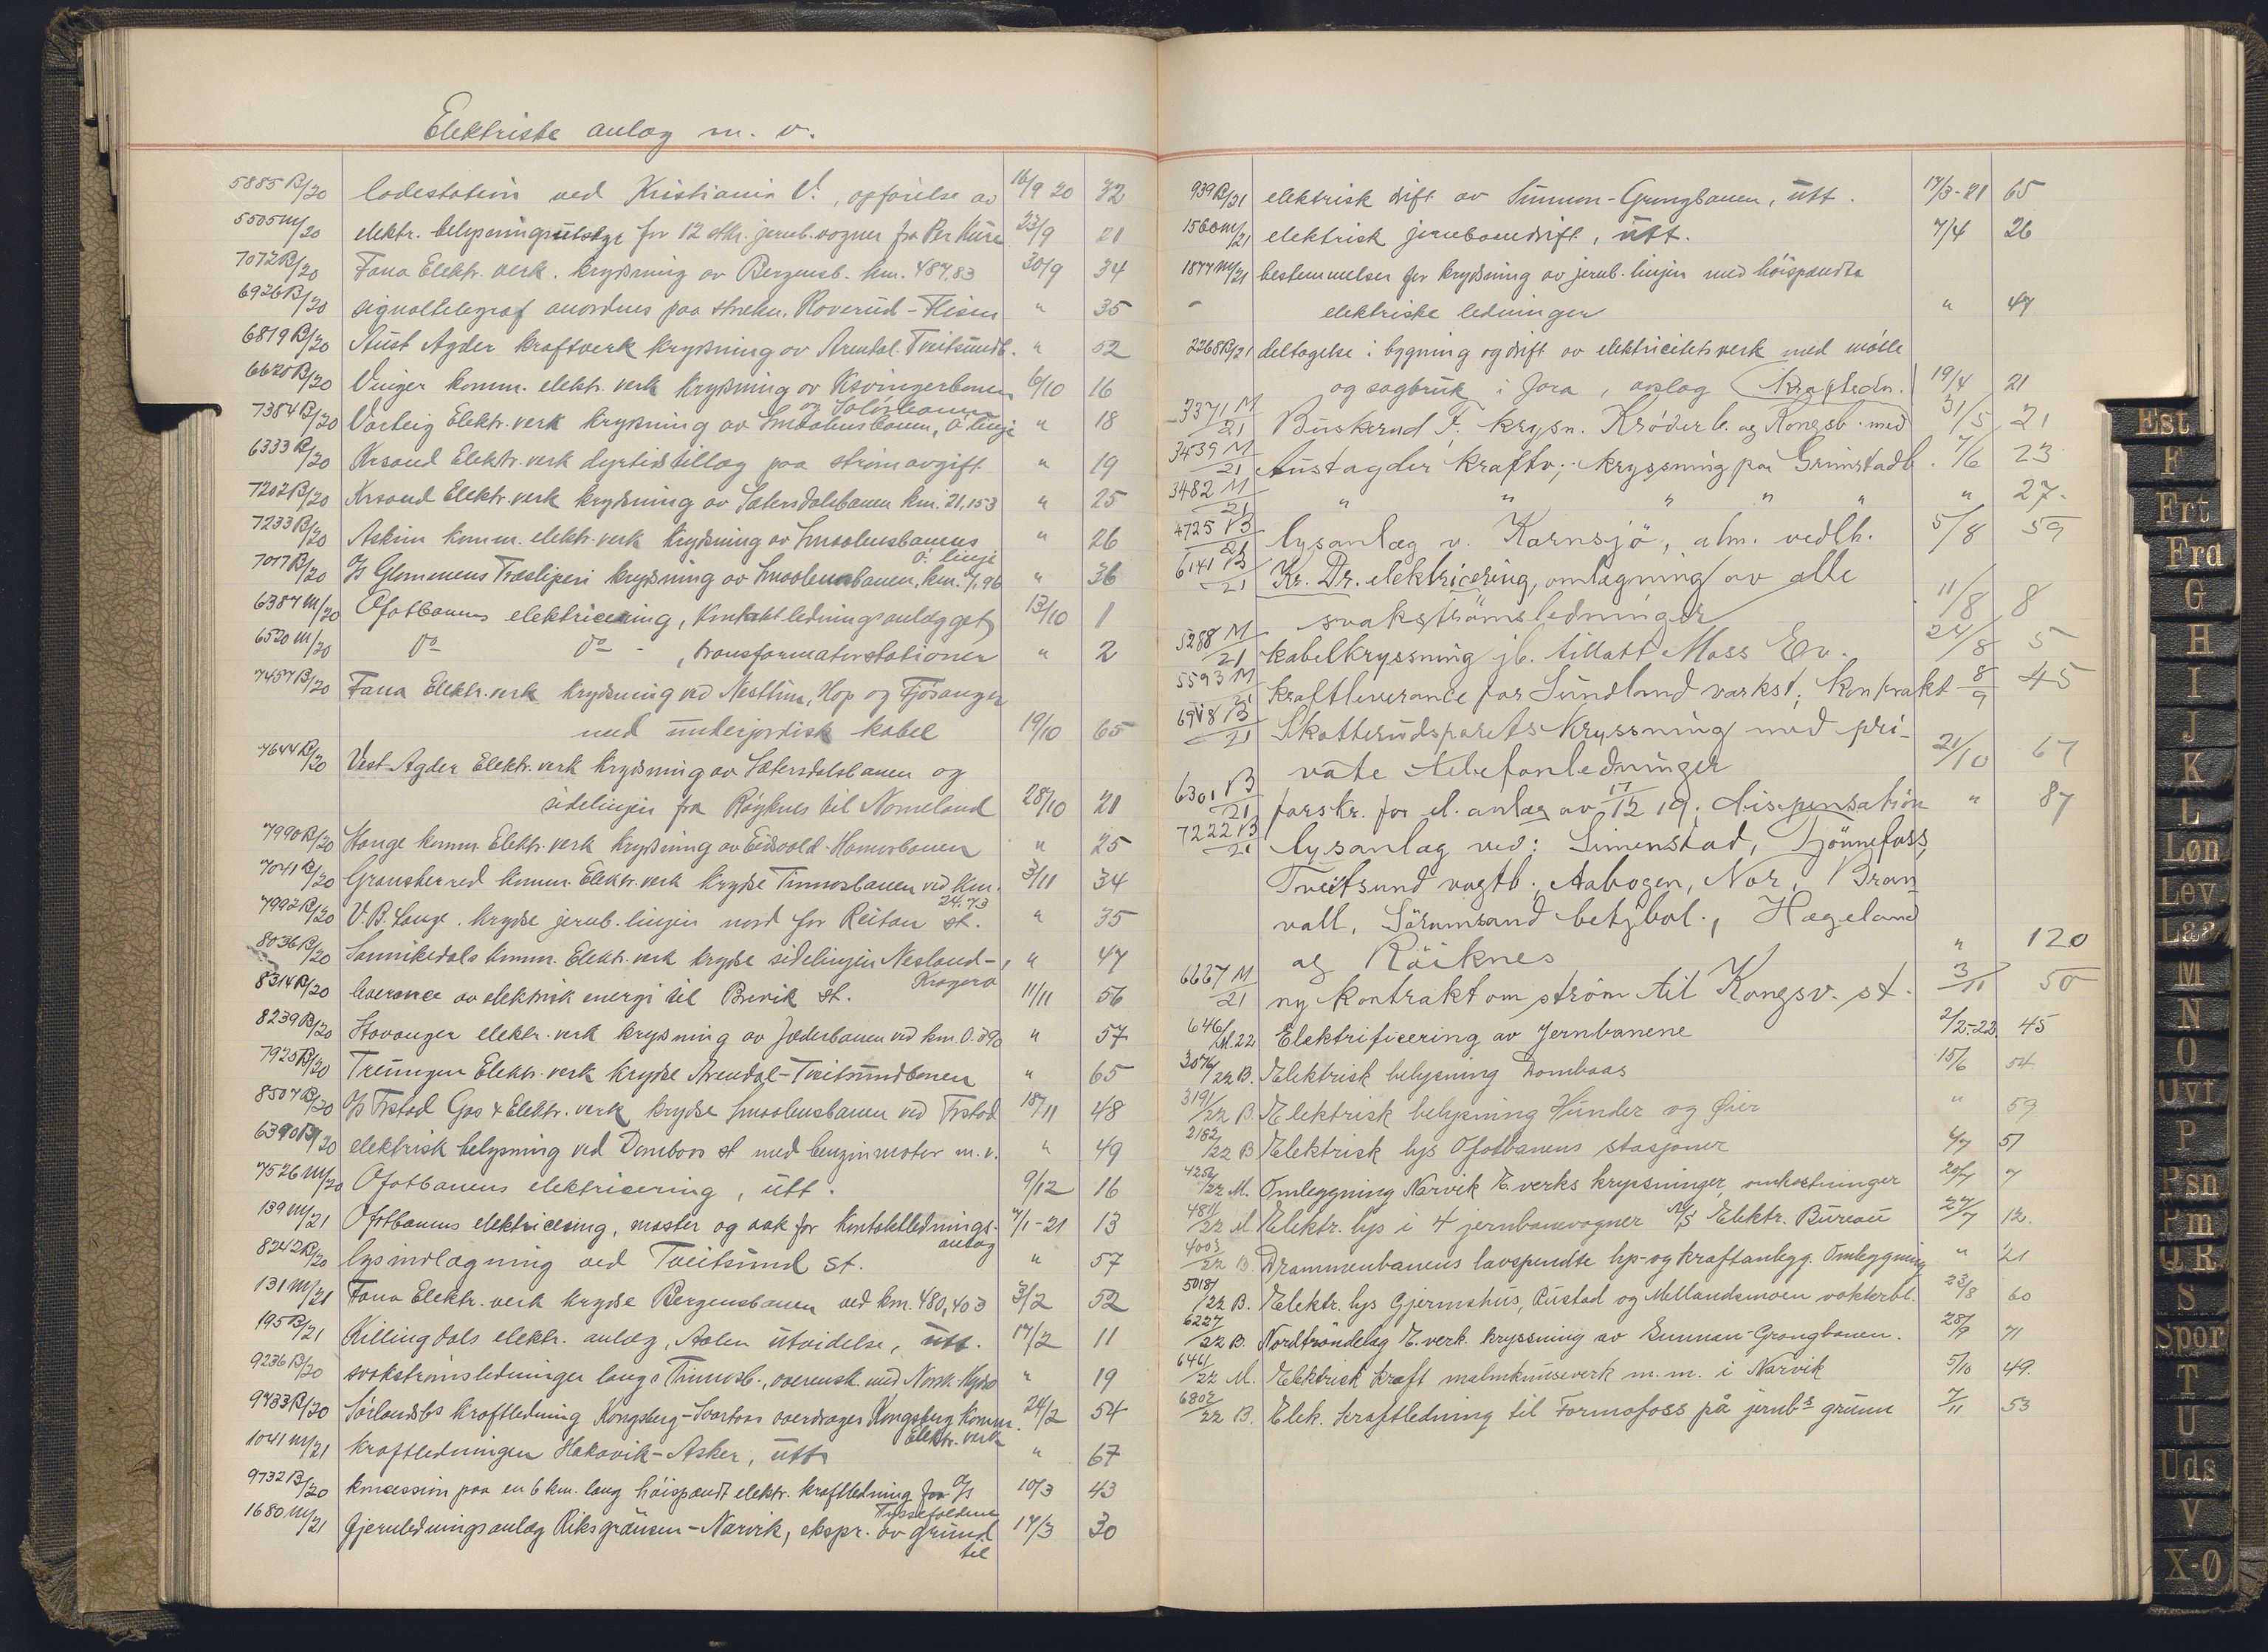 Elektriske anlæg m. v.
5885 B/20 ladestation ved Kristiania V., opførelse av 16/9 20 32
5505 M/20 elektr. belysningsutstyr for 12 stk. jernb.vogner fra Per Kure 23/9 21
7072 B/20 Fana Elektr. verk. krydsning av Bergensb. km. 487,83 30/9 34
6926 B/20 signaltelegraf anordnes paa strekn. Roverud-Flisen " 35
6819 B/20 Aust Agder kraftverk krydsning av Arendal-Tveitsundb. " 52
6620 B/20 Vinger komm. elektr. verk krydsning av Ksvingerbanen 6/10 16
og Solørbanen
7384 B/20 Varteig Elektr. verk krydsning av Smaalensbanen, ö. linje " 18
6333 B/20 Krsand Elektr. verk dyrtidstillæg paa strømavgift " 19
7202 B/20 Krsand Elektr. verk krydsning av Sætersdalsbanen km. 21,153 " 25
7233 B/20 Askim komm. elektr. verk krydsning av Smaalensbanens " 26
ö. linje
7077 B/20 A/S Glommens Træsliperi krydsning av Smaalensbanen, km. 7,96 " 36
6387 M/20 Ofotbanens elektricering, Kontaktledningsanlægget 13/10 1
6520 M/20 Do Do - , transformatorstationer " 2
7457 B/20 Fana Elektr. verk krydsning ved Nesttun, Hop og Fjøsanger
med underjordisk kabel 19/10 65
7644 B/20 Vest-Agder Elektr. verk krydsning av Sætersdalsbanen og
sidelinjen fra Røyknes til Nomeland 28/10 21
7990 B/20 Stange komm. Elektr. verk krydsning av Eidsvold-Hamarbanen " 25
7041 B/20 Gransherred komm. Elektr. verk krydse Tinnosbanen ved km. 3/11 34
24,73
7992 B/20 V. B. Lange. krydse jernb. linjen nord for Reitan st. " 35
8036 B/20 Sannikedals komm. Elektr. verk krydse sidelinjen Nesland- " 47
Kragerø
8314 B/20 leverance av elektrisk energi til Brevik st. 11/11 56
8239 B/20 Stavanger elektr. verk krydsning av Jæderbanen ved km. 0.890 " 57
7925 B/20 Treungen Elektr. verk krydse Arendal-Tveitsundbanen " 65
8507 B/20 A/S Frstad Gas & Elektr. verk krydse Smaalensbanen ved Frstad 18/11 48
6390 B/20 elektrisk belysning ved Dombaas st med benzinmotor m.v. " 49
7526 M/20 Ofotbanens elektricering, utt. 9/12 16
139 M/21 Ofotbanens elektricering, master og aak for kontaktlednings- 7/1-21 13
anlæg
8242 B/20 lysindlægning ved Tveitsund st. " 57
131 M/21 Fana Elektr. verk krydse Bergensbanen ved km. 480,403 3/2 52
195 B/21 Killingdals elektr. anlæg, Aalen utvidelse, utt. 17/2 11
9236 B/20 svakstrømsledninger langs Tinnosb., overensk. med Norsk Hydro " 19
9433 B/20 Sørlandsbs kraftledning Kongsberg-Svartaas overdrages Kongsberg komm. 24/2 54
Elektr. verk
1041 M/21 kraftledningen Hakavik-Asker, utt " 67
9732 B/20 koncession paa en 6 km. lang høispændt elektr. kraftledning for A/S 10/3 43
Tyssefaldene
1680 M/21 fjernledningsanlæg Riksgränsen-Narvik, ekspr. av grund 17/3 30
til
939 B/21 elektrisk drift av Sunnan-Grongbanen, utt. 17/3-21 65
1560 M/21 elektrisk jernbanedrift, utt. 7/4 26
1877 M/21 bestemmelser for krydsning av jernb. linjen med høispændte
- elektriske ledninger " 47
2268 B/21 deltagelse i bygning og drift av elektricitetsverk med mølle
og sagbruk i Jara, avslag (Kraftledn. 19/4 21
3371 M/21 Buskerud F. krysn. Krøderb. og Kongsb. med 31/5 21
3439 M/21 Austagder kraftv; kryssning på Grimstadb. 7/6 23
3482 M/21 " " " " " " 27.
4725 B/21 lysanlæg v. Kornsjö, alm. vedlh. 5/8 59
6141 B/21 Kr. Dr. elektricering, omlægning av alle
svakströmsledninger 11/8 8
5288 M/21 kabelkryssning jb. tillatt Moss Ev. 24/8 5
5593 M/21 kraftleverance for Sundland verkst; kontrakt 8/9 45
6918 B/21 Skotterudsporets kryssning med pri-
vate telefonledninger 21/10 67
6301 B/21 forskr. for el. anlæg av 17/12 19; dispensation " 87
7222 B/21 lysanlæg ved: Simenstad, Tjönnefoss,
Tveitsund vogtb., Aabogen, Nor, Bran-
vall, Sörumsand betjbol., Hægeland
og Röiknes " 120
6667 M/21 ny kontrakt om ström til Kongsv. st. 3/11 50
646/M.22 Elektrificering av Jernbanene 2/2-22. 45
3076/22 B. Elektrisk belysning Dombaas 15/6 54
3191/22 B. Elektrisk belysning Hunder og Øier " 59
2182/22 B Elektrisk lys Ofotbanens stasjoner 6/7 51
4252/22 M. Omleggning Narvik E. verks kryssninger, omkostninger 20/7 7
4811/22 M. Elektr. lys i 4 jernbanevogner A/S Elektr. Bureau 27/7 12.
4003/22 B Drammenbanens lavspendte lys- og kraftanlegg. Omleggning " 21
5018/22 B. Elektr. lys Gjermshus, Rustad og Mellandsmoen vokterbl. 23/8 60
6227/22 B. Nordtröndelag E. verk. kryssning av Sunnan-Grongbanen. 28/9 71
6461/22 M. Elektrisk kraft malmknuseverk m. m. i Narvik 5/10 49.
6802/22 B. Elek. kraftledning til Formofoss på jernbs grunn 7/11 53
Est
F
Frt
Frd
G
H
I
J
K
L
Løn
Lev
Laa
M
N
O
Ovf
P
Psn
Pm
Q R
S
Spor
T
U
Uds
V
X-Ø